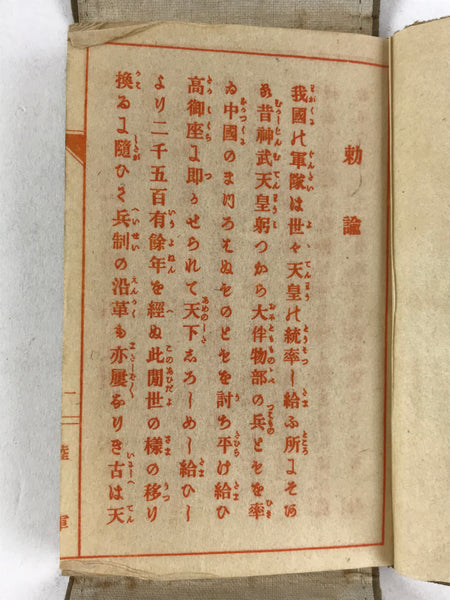 勅諭
我國の軍隊は世々天皇の統率し給ふ所にそあ
る昔神武天皇躬つから大伴物部の兵ともを率
ゐ中國のまつろはぬものともを討ち平け給ひ
高御座に即かせられて天下しろしめし給ひし
より二千五百有餘年を經ぬ此間世の樣の移り
換るに隨ひて兵制の沿革も亦屢なりき古は天
二
陸軍